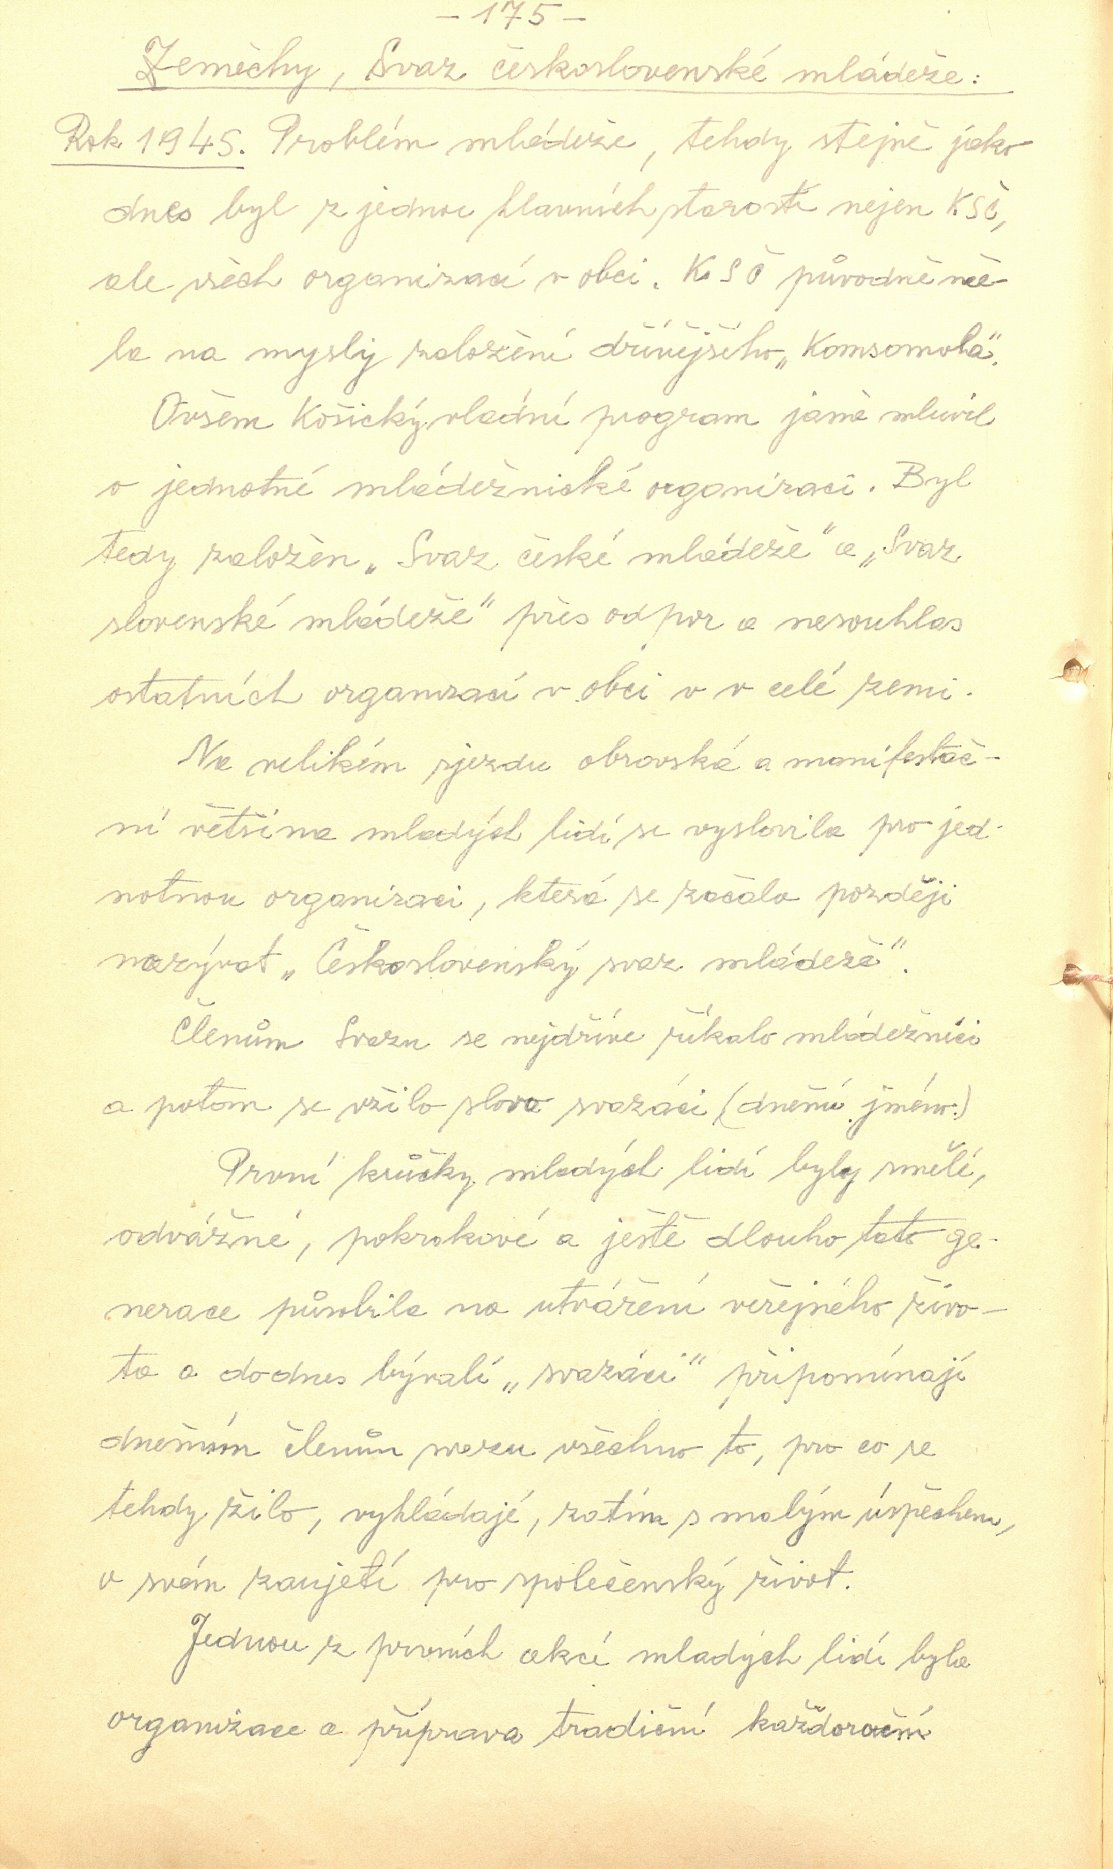 - 175 -
Zeměchy, Svaz československé mládeže:
Rok 1945. Problém mládeže, tehdy stejně jako
dnes byl z jednou hlavních starostí nejen KSČ,
ale všech organizací v obci. KSČ původně mě-
la na mysly založení dřívějšího „Komsomola".
Ovšem Košický vládní program jasně mluvil
o jednotné mládežnické organizaci. Byl
tedy založen „Svaz české mládeže" a „Svaz
slovenské mládeže" přes odpor a nesouhlas
ostatních organizací v obci v v celé zemi.
Na velikém sjezdu obrovská a manifestač-
ní většina mladých lidí se vyslovila pro jed-
notnou organizaci, která se začala později
nazývat „Československý svaz mládeže".
Členům Svazu se nejdříve říkalo mládežníci
a potom se vžilo slovo svazáci (dnešní jméno.)
První krůčky mladých lidí byly smělé,
odvážné, pokrokové a ještě dlouho tato ge-
nerace působila na utváření veřejného živo-
ta a dodnes bývalí „svazáci" připomínají
dnešním členům svazu všechno to, pro co se
tehdy žilo, vyhládají, zatím s malým úspěchem,
v svém zaujetí pro společenský život.
Jednou z prvních akcí mladých lidí byla
organizace a příprava tradiční každoroční